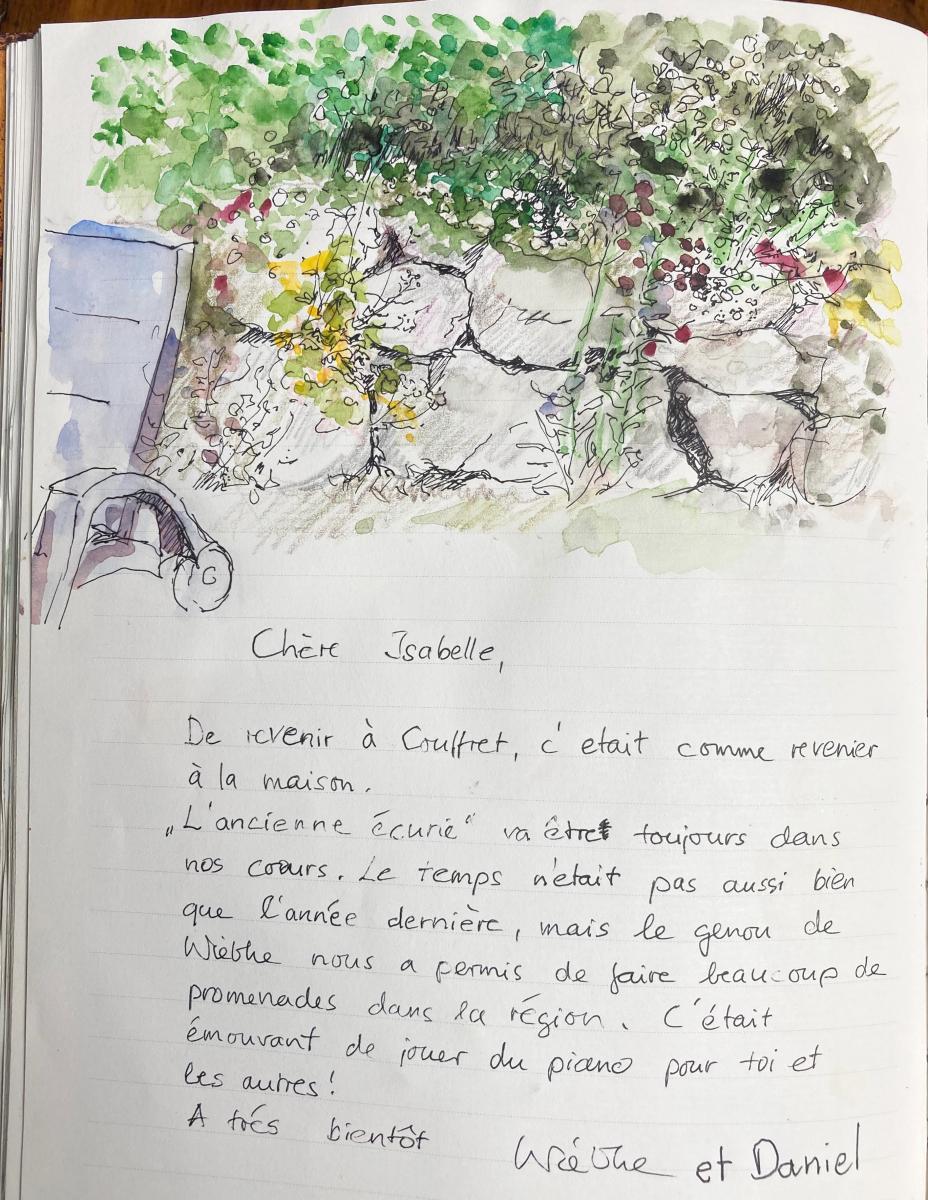 Chère Isabelle,
De revenir à Couffret, c'etait comme revenier
à la maison.
„L'ancienne écurie“ va être toujours dans
nos cœurs. Le temps n'était pas aussi bien
que l'année dernière, mais le genou de
Wiebke nous a permis de faire beaucoup de
promenades dans la région. C'était
émouvant de jouer du piano pour toi et
les autres!
A trés bientôt
Wiebke et Daniel